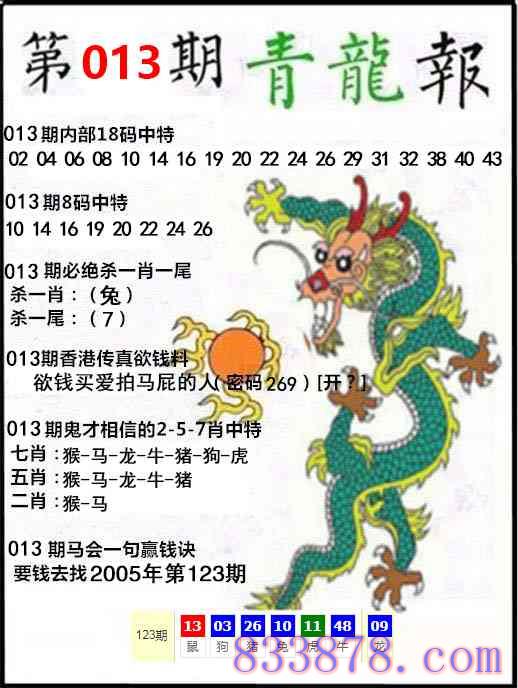 第013期青龍報
013期内部18码中特
02 04 06 08 10 14 16 19 20 22 24 26 29 31 32 38 40 43
013期8码中特
10 14 16 19 20 22 24 26
013 期必绝杀一肖一尾
杀一肖：（兔）
杀一尾：（7）
013期香港传真欲钱料
欲钱买爱拍马屁的人（密码269）[开？]
013期鬼才相信的2-5-7肖中特
七肖：猴-马-龙-牛-猪-狗-虎
五肖：猴-马-龙-牛-猪
二肖：猴-马
013 期马会一句赢钱诀
要钱去找2005年第123期
123期 13 03 26 10 11 48 09
鼠 狗 猪 兔 虎 牛 龙
833878.com